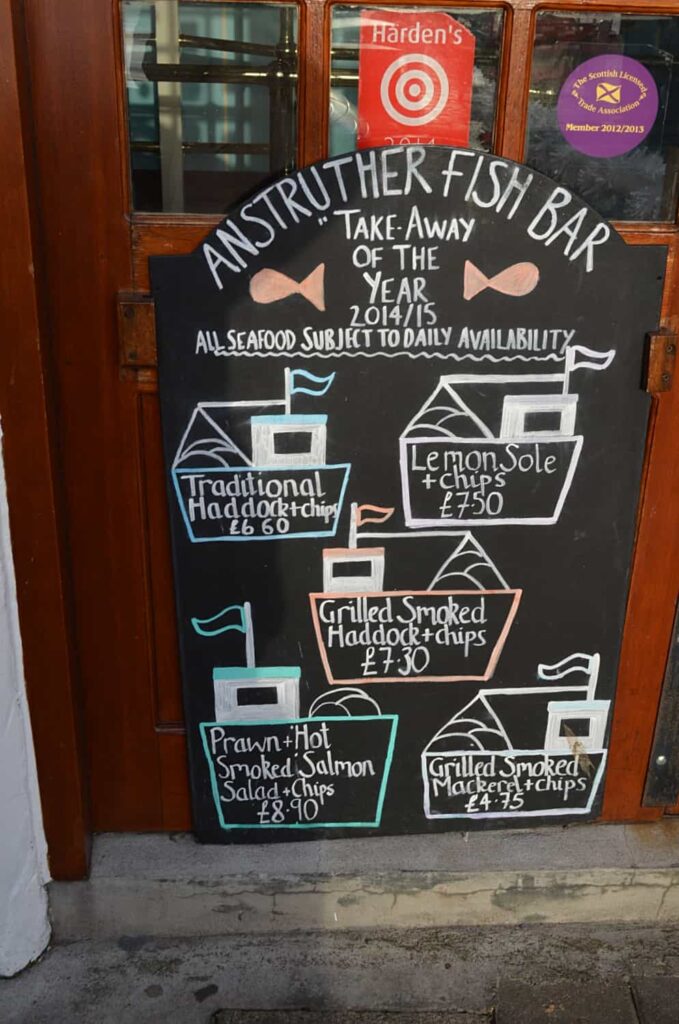 Harden's
2014
The Scottish Licensed
Trade Association
Member 2012/2013
ANSTRUTHER FISH BAR
"TAKE-AWAY
OF THE
YEAR
2014/15
ALL SEAFOOD SUBJECT TO DAILY AVAILABILITY
Traditional
Haddock+chips
£6 60
Lemon Sole
+chips
£7.50
Grilled Smoked
Haddock+chips
£7.30
Prawn+Hot
Smoked Salmon
Salad+Chips
£8.90
Grilled Smoked
Mackerel+chips
£4.75